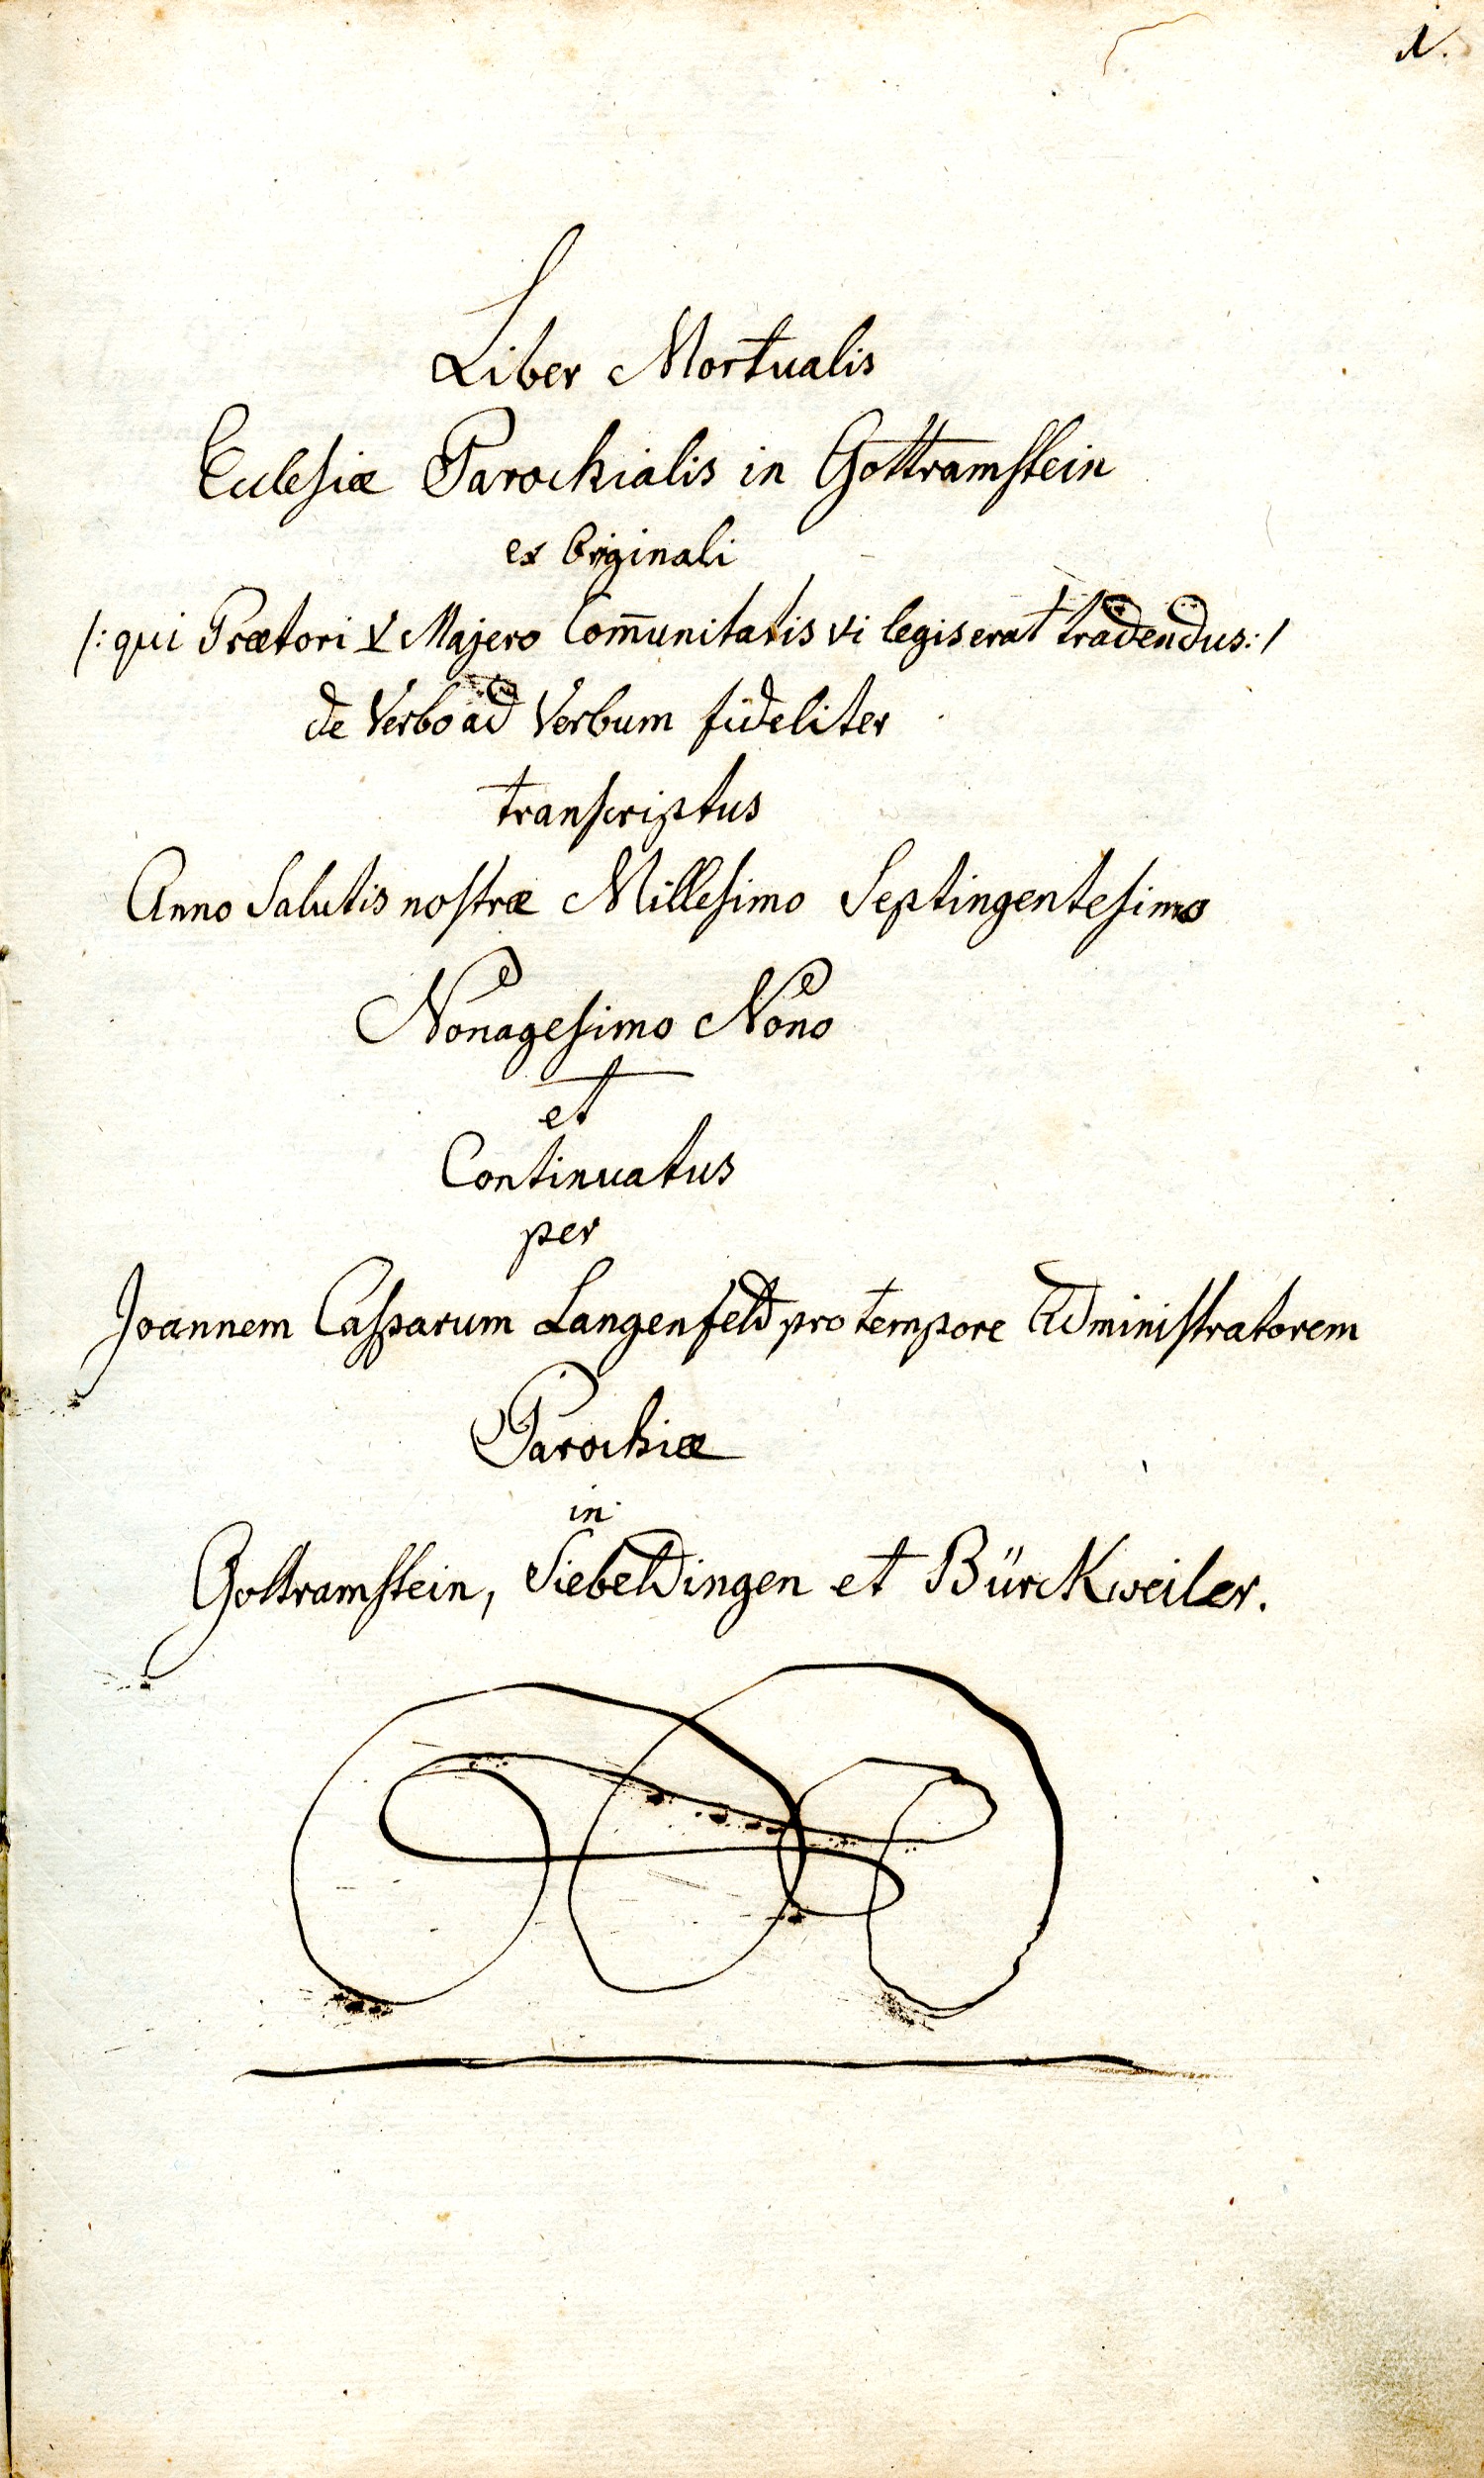 1.
Liber Mortualis
Ecclesiæ Parochialis in Gottramstein
ex Originali
/: qui Prætori & Majero Com̄unitatis vi legis erat tradendus: /
de Verbo ad Verbum fideliter
transcriptus
Anno Salutis nostræ Millesimo Septingentesimo
Nonagesimo Nono
et
Continuatus
per
Joannem Casparum Langenfeld pro tempore Administratorem
Parochiæ
in
Gottramstein, Siebeldingen et Bürckweiler.